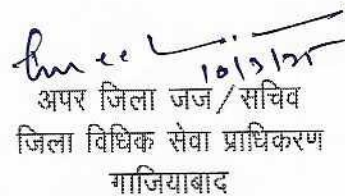 10/3/25
अपर जिला जज / सचिव
जिला विधिक सेवा प्राधिकरण
गाजियाबाद